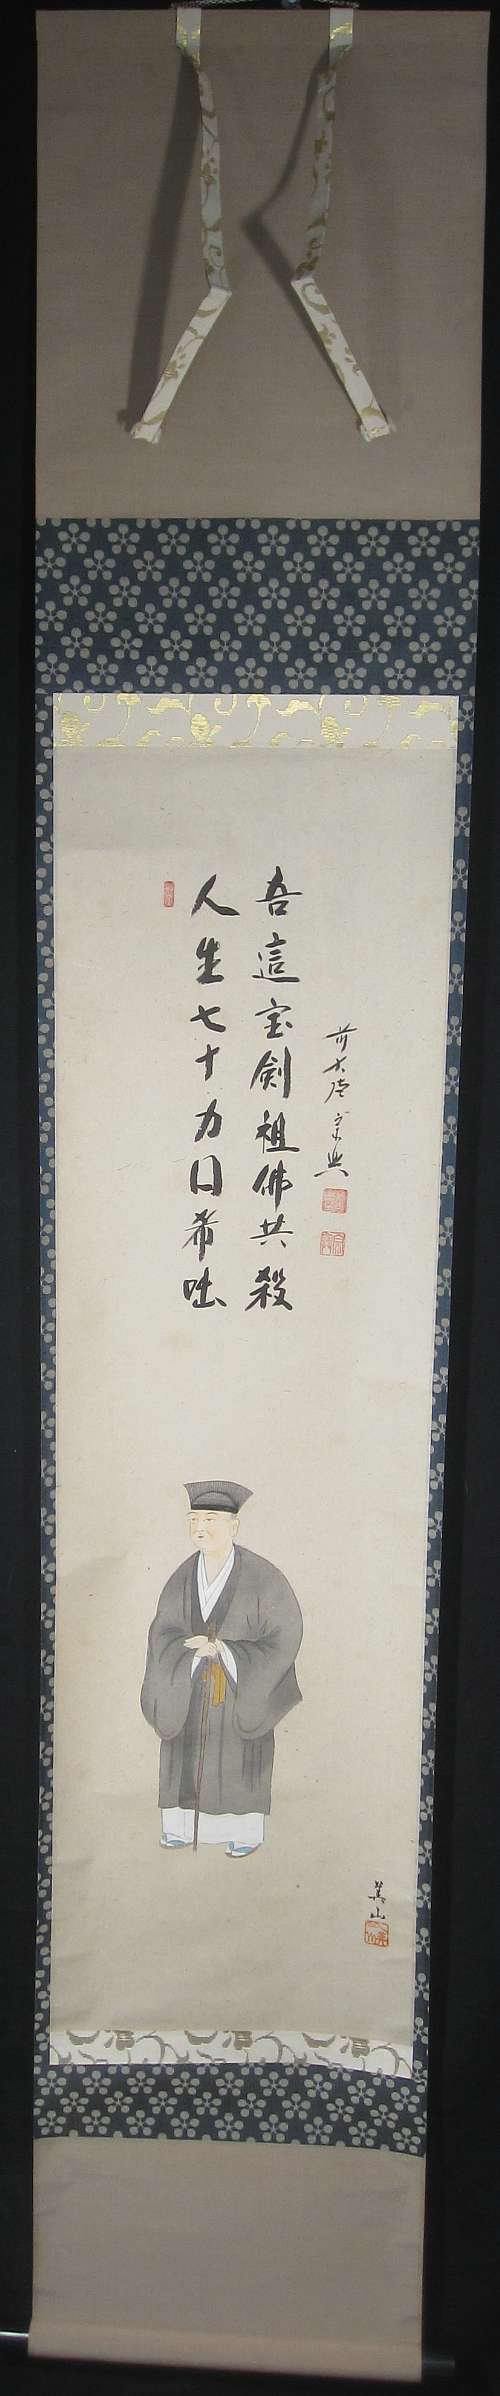 人生七十力囲希咄
吾這宝剣祖佛共殺
前大徳宗興
山